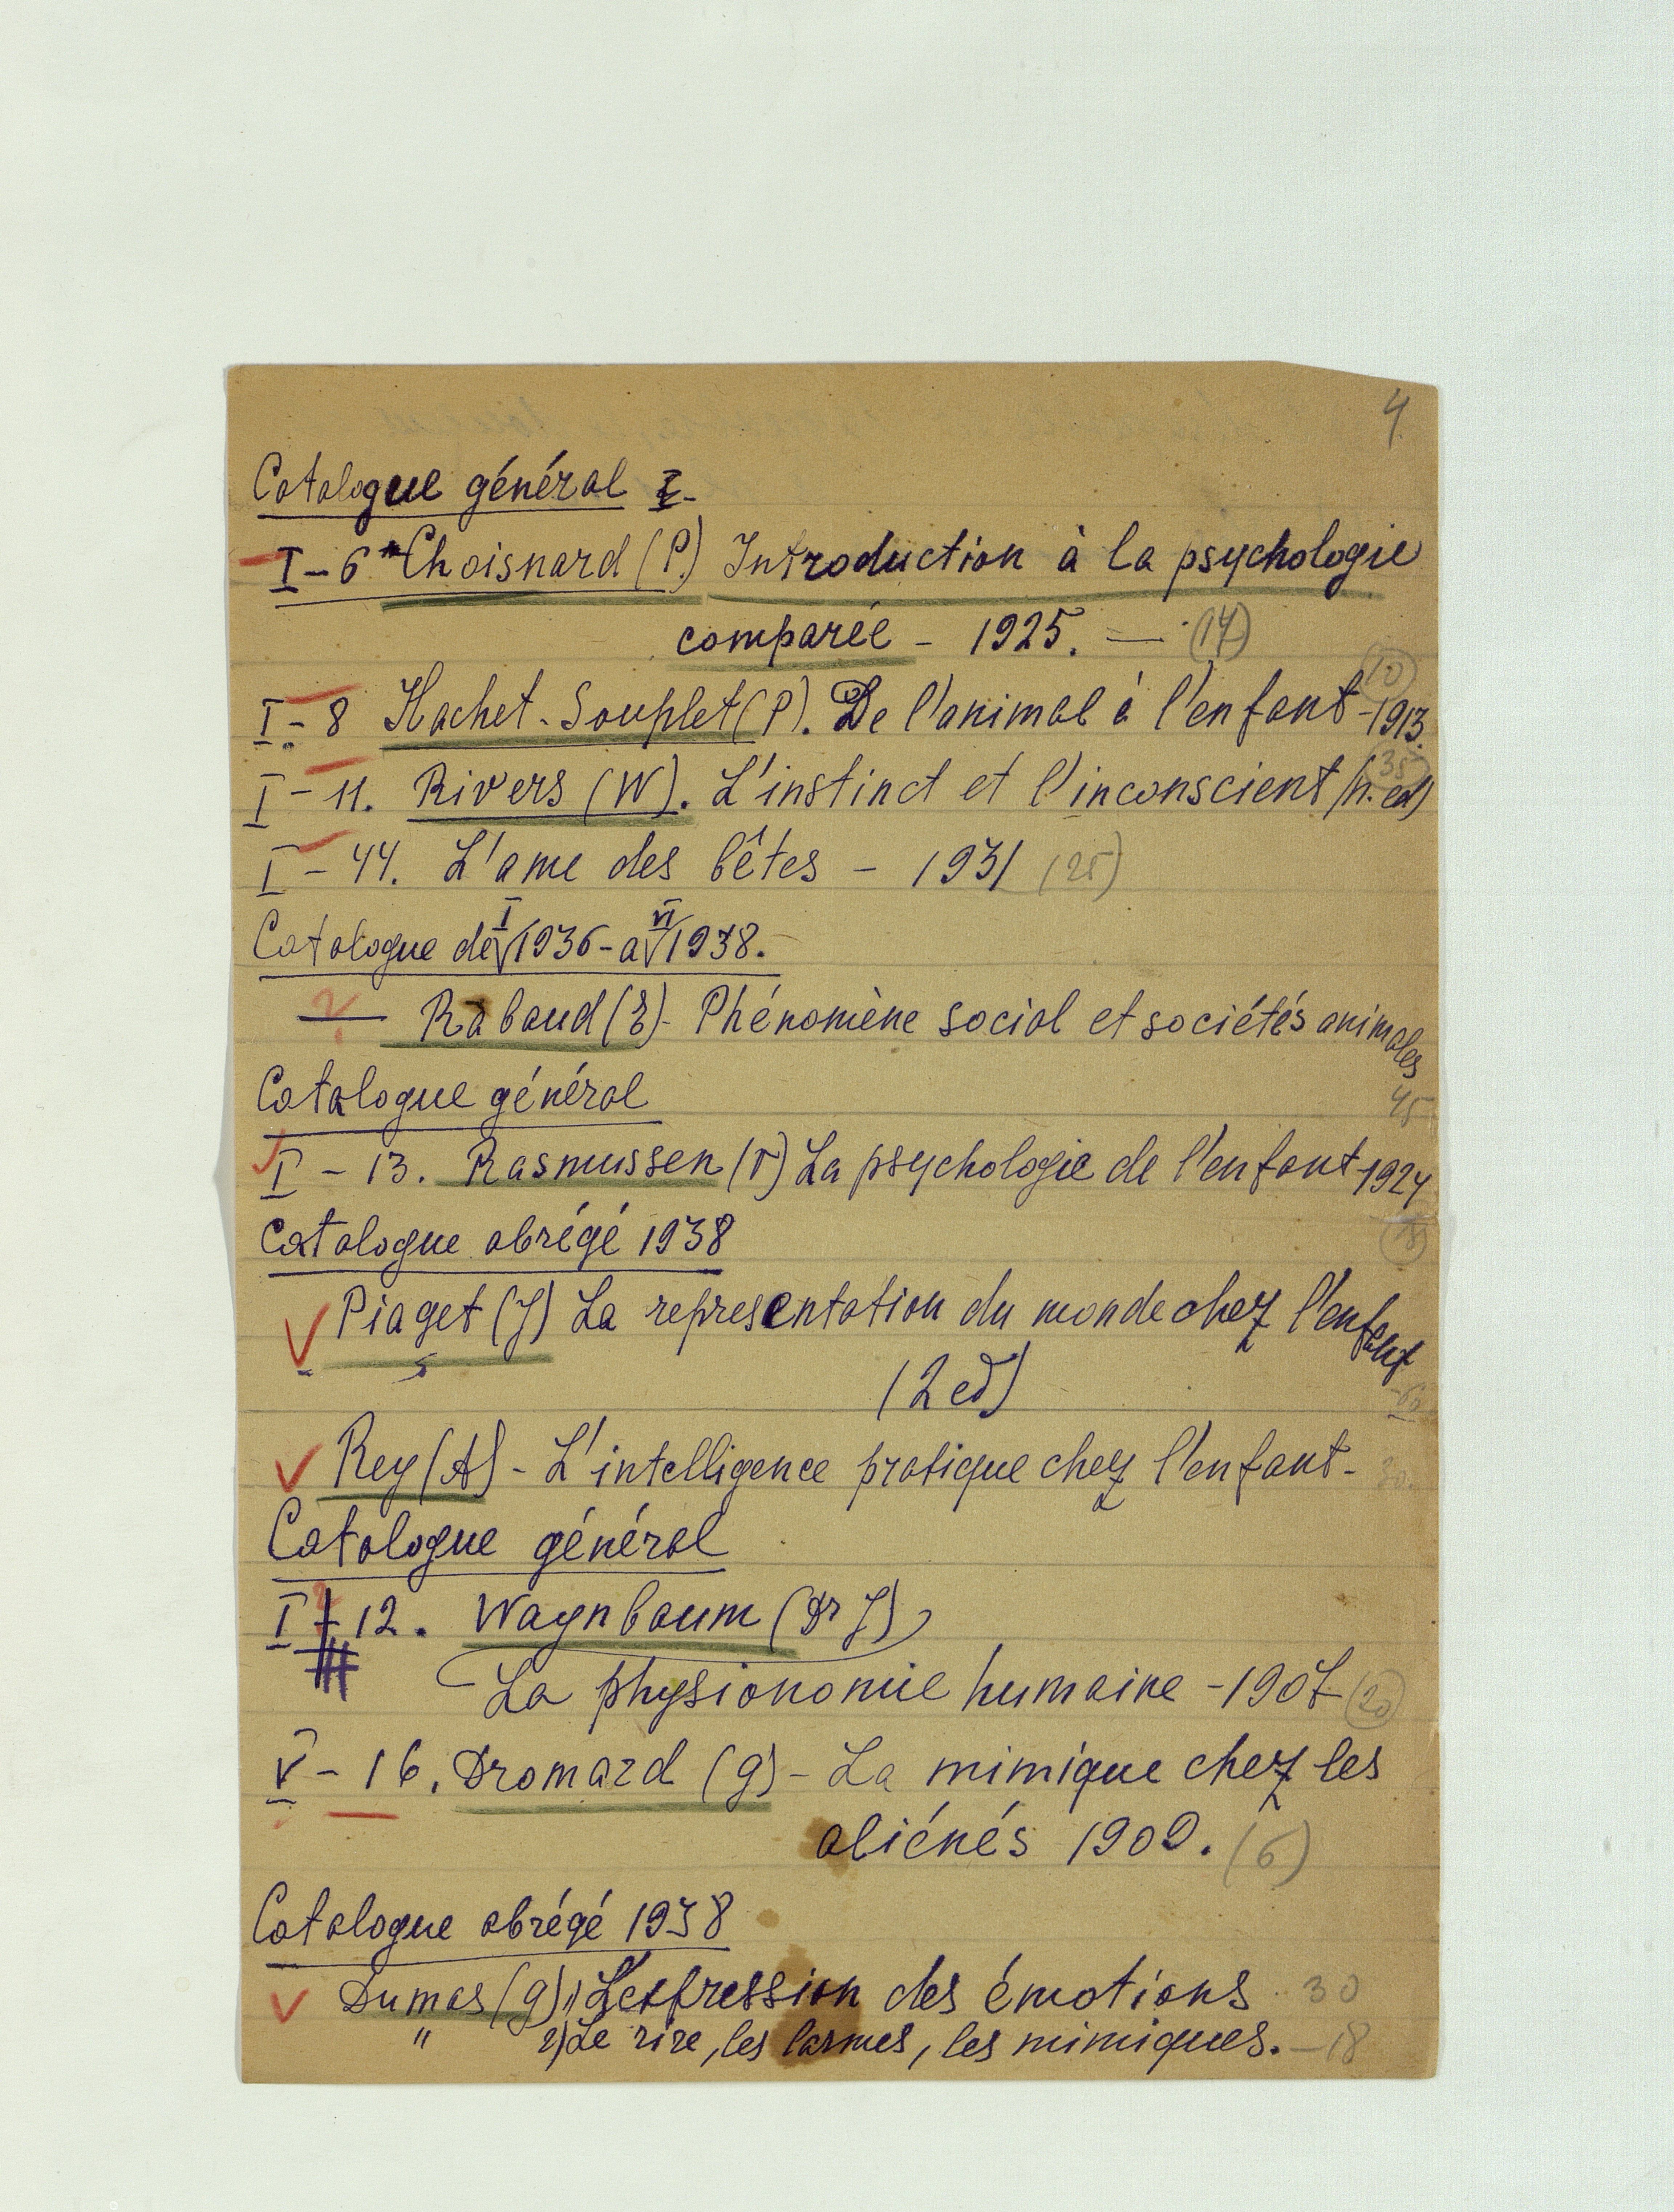 4.
Catalogue général I-
I-6 Choisnard (P.) Introduction à la psychologie
comparée - 1925. — (14)
(10)
I-8 Hachet-Souplet (P). De l'animal à l'enfant -1913.
(35)
I-11. Rivers (W). L'instinct et l'inconscient (n. ed)
I-44. L'ame des bêtes - 1931 (25)
I VI
Catalogue de 1936-a 1938.
? — Rabaud (E)- Phénomène social et sociétés animales
45
Catalogue général
I-13. Rasmussen (V) La psychologie de l'enfant-1924
Catalogue abrégé 1938
Piaget (J) La representation du monde chez l'enfant
(2 ed)
Rey (A) - L'intelligence pratique chez l'enfant- 30.
Catalogue général
?
I-12. Waynbaum (Dr J)
La physionomie humaine -1907 (20)
V-16. Dromard (g)- La mimique chez les
aliénés 1909. (6)
Catalogue abrégé 1938
Dumas (g) 1) L'expression des émotions 30
" 2) Le rire, les larmes, les mimiques. -18